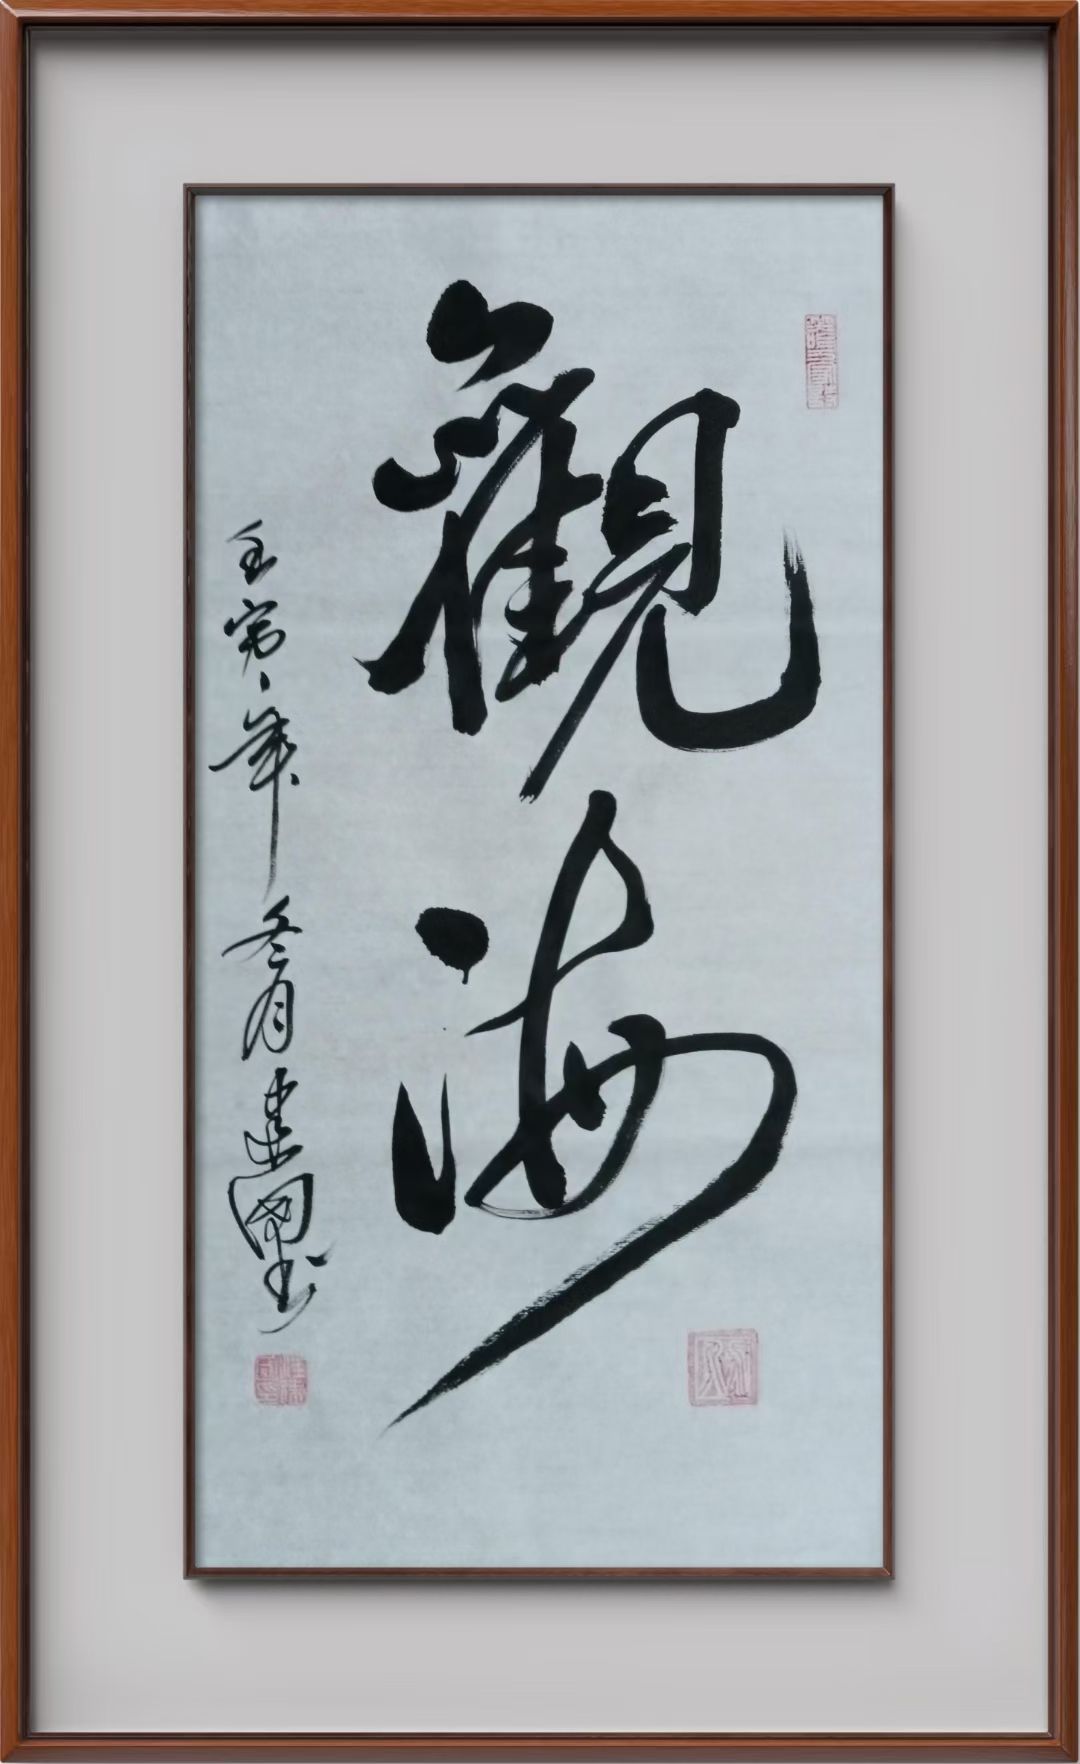 觀海
壬寅年冬月建國书